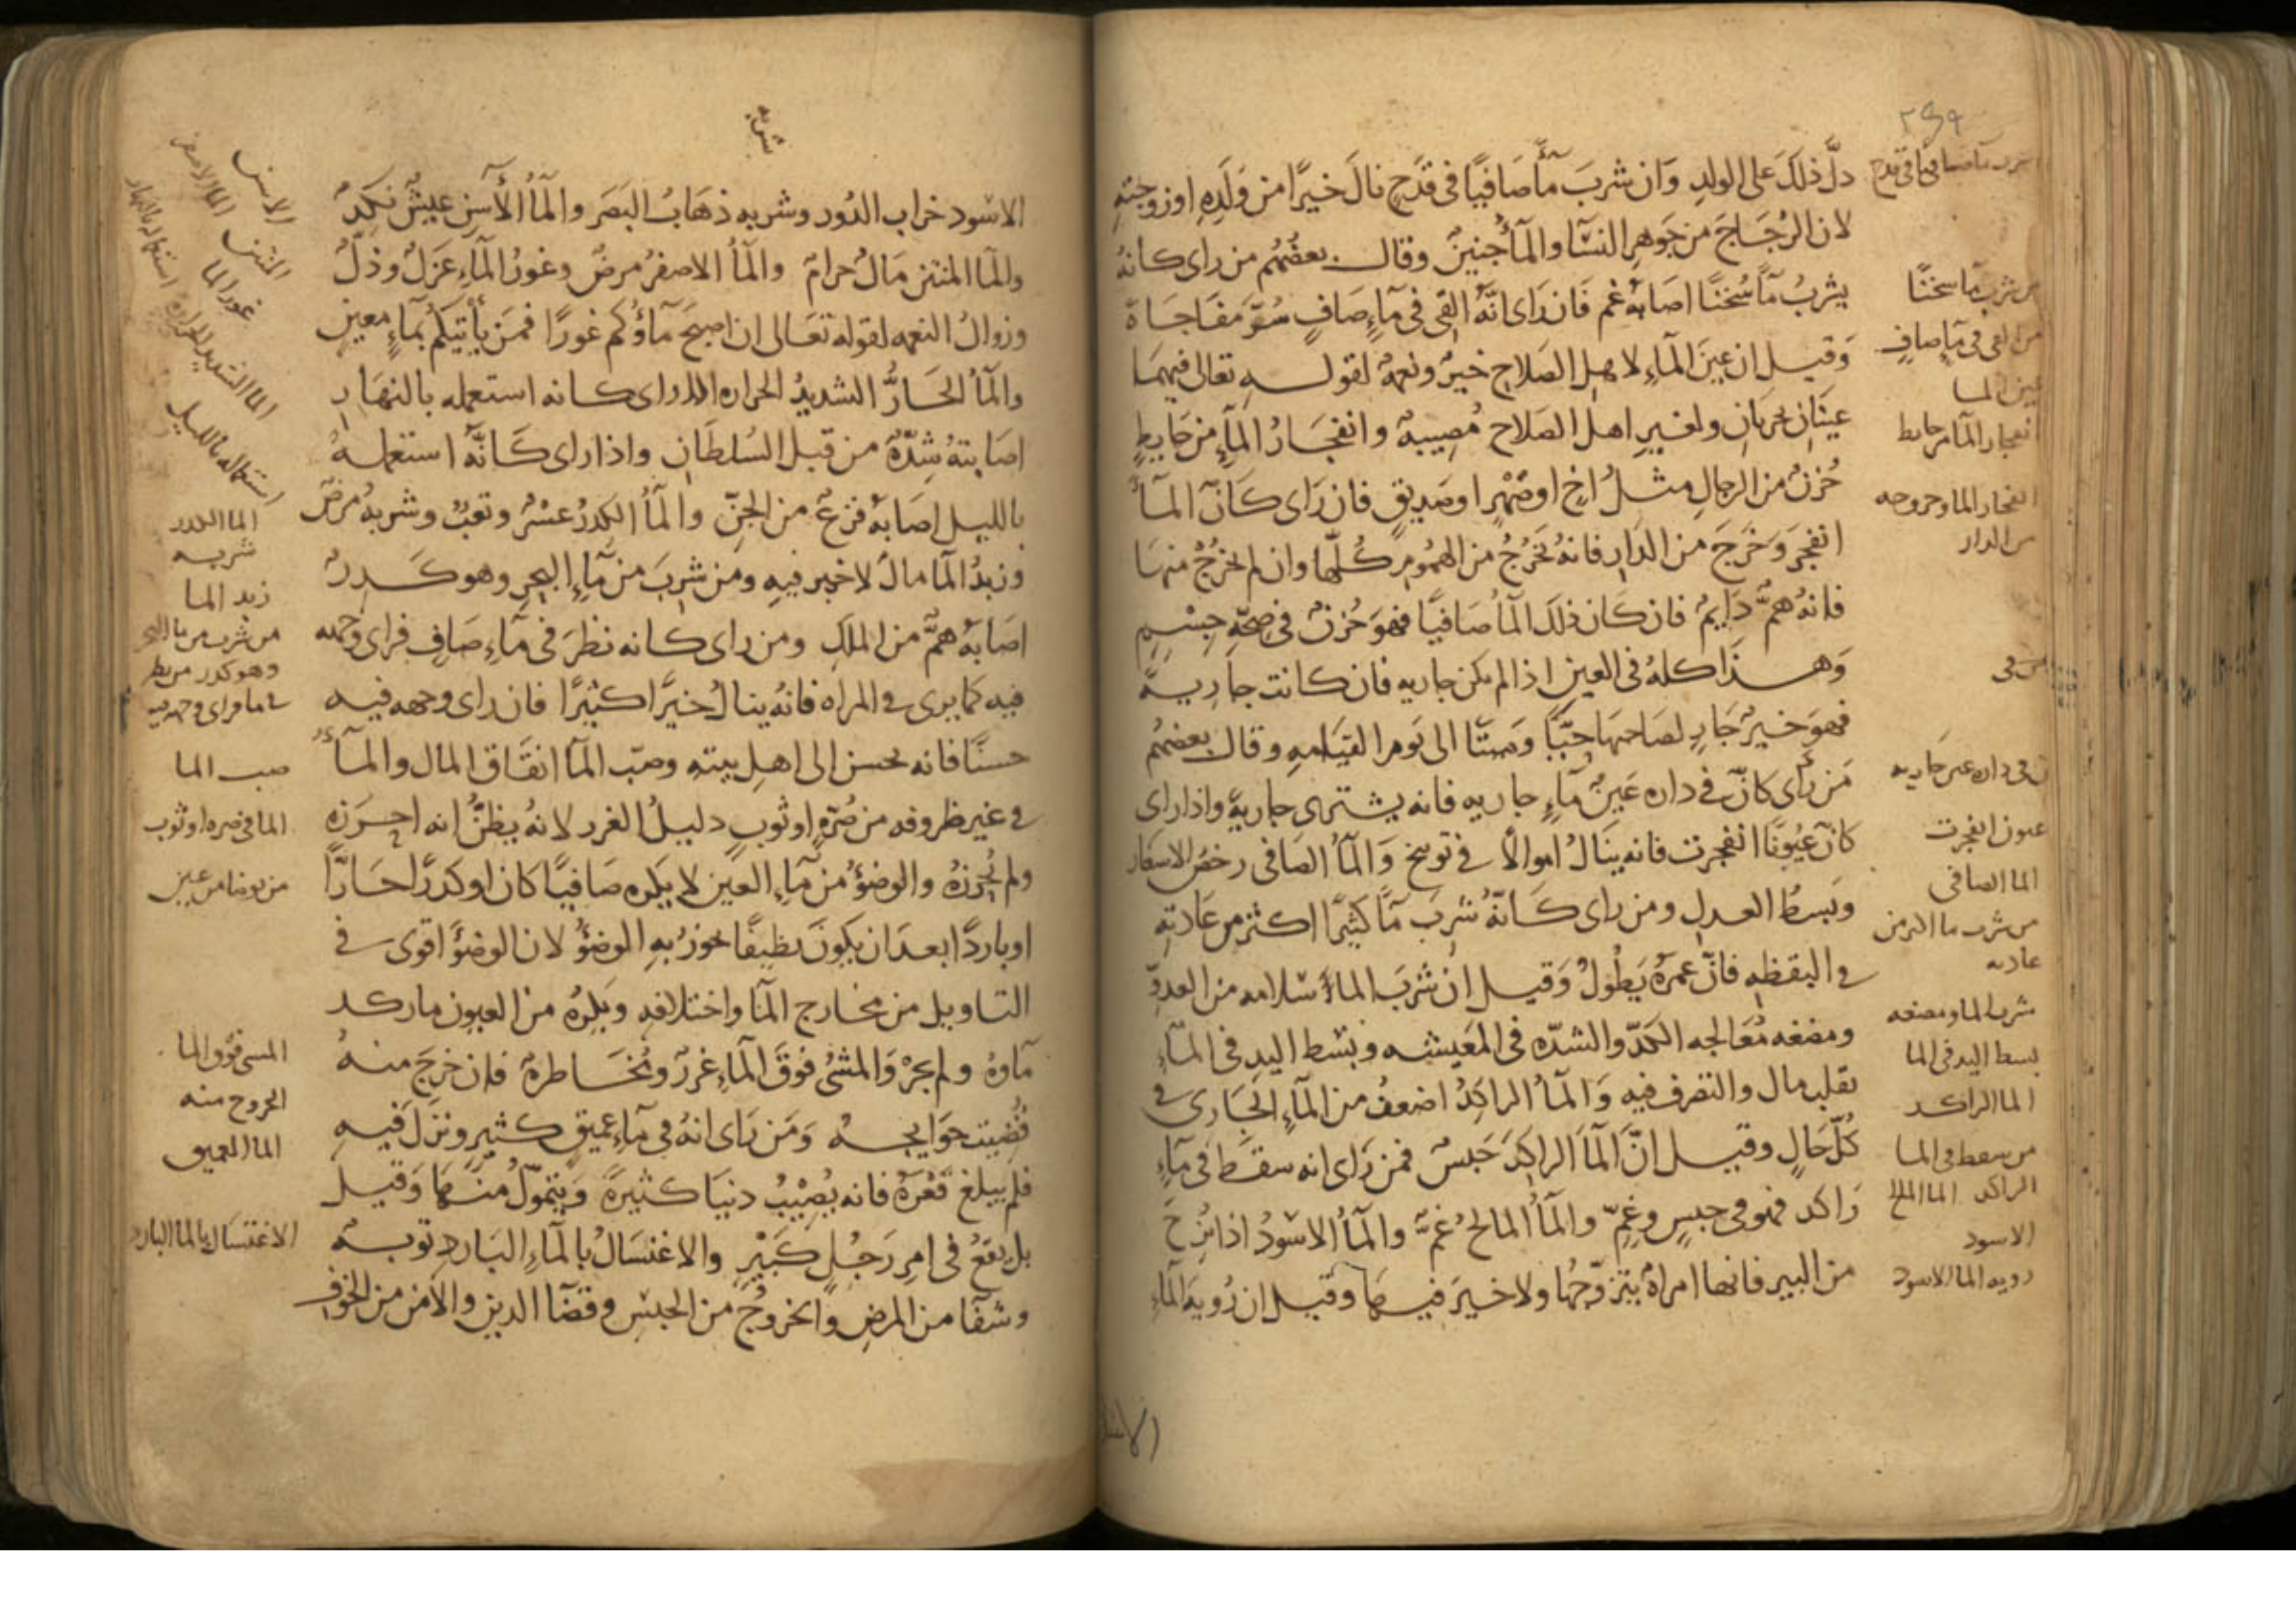 دلَّ ذلكَ على الولدِ وَان شربَ مآًصَافيًا فى قدَحٍ نالَ خيرًا من وَلَدِهِ او زوجتهِ
لان الزجَاجَ من جَوهرِ النسَآ والمآُ جنينٌ وقال بعضُهُم من راى كانهُ
يشربُ مآً سُخنًا اصَابهُ غم فَان رَاى انَّهُ القى فى مَآءٍ صَافٍ سُرَّ مفَاجَاة
وَقيل ان عينَ المآءِ لاهلِ الصَلاحِ خيرٌ ونعمهٌ لقولـه تعالى فيهمَا
عينَانِ تجريَانِ ولغيرِ اهلِ الصَلاح مُصيبهٌ وانفجَارُ المآءِ من حَايطٍ
حُزنٌ من الرجالِ مثلُ اخٍ او صِهْرٍ او صَديقٍ فان رَاى كَانّ المآءَ
انفجرَ وَخرَجَ من الدَارِ فانهُ يَخرُجُ من الهمُومِ كُلّها وان لم يخرُجْ منهَا
فانهُ همٌّ دَايمٌ فان كَان ذلكَ المآُ صَافيًا فهوَ حُزنٌ فى صحّهِ جِسْمٍ
وَهذَا كلهُ فى العينِ اذا لم تكن جاريه فان كانت جاريـةً
فهوَ خيرٌ جَارٍ لصَاحبهَا حيًّا وَميتًا الى يَوم القيَامهِ وقال بعضهُم
مَن رأى كانّ فى داره عَينُ مآءٍ جاريه فانه يشترى جاريةً واذا راى
كانّ عيُونًا انفجرت فانه ينَالُ اموالاً فى توبيخ وَالمآُ الصَافى رخصُ الاسعار
وَبسطُ العدلِ ومن راى كَانّهُ شربَ مآً كثيرًا اكثر من عَادتهِ
فى اليقظهِ فانّ عمرَهُ يَطولُ وَقيل ان شربَ المآءِ سَلامه من العدوِّ
ومضغه مُعَالجه الكدّ والشدّه فى المَعيشه وبَسْط اليد فى المآءِ
تقليب مال والتصرف فيه وَالمآُ الراكِدُ اضعفُ من المآءِ الجَارى فى
كُلّ حَالٍ وقيل انَّ المآَ الراكِدَ حَبسٌ فمن رَاى انه سقطَ فى مآءٍ
رَاكد فهو فى حبسٍ وغمٍّ والمآُ المالحُ غمٌّ والمآُ الاسْودُ اذا نُزحَ
من البير فانها امراهٌ يتزوّجُها ولا خيرَ فيهَا وقيل ان رُويَه المآءِ
من شرب مآ سخنًا
من القى فى مآء صافٍ
عين المـا
انفجار المآ من حايط
انفجار الما وخروجه
من الدار
فى داره عين جاريه
عيون انفجرت
الما الصافى
من شرب ما اكثر من
عادته
شرب الما ومضغه
بسط اليد فى الما
الما الراكـد
من سقط فى المـا
الراكد الما المالح
الاسود
رويه الما الاسود
شربه
الاسْود خراب الدُور وشربه ذهَابُ البَصَر والمآُ الأسنِ عيشٌ نكِدٌ
والمآ المنتن مَالٌ حرامٌ والمآُ الاصفرُ مرضٌ وغورُ المآءِ عَزلٌ وَذلٌّ
وزوالُ النعمه لقوله تعَالى ان اصبحَ مآؤكُم غورًا فمَن يأتيكُم بمآءٍ معين
والمآُ الحَارُّ الشديدُ الحراره اذا راى كـانه استعمله بالنهَارِ
اصَابتهُ شِدّهٌ من قبل السُلطَانِ واذا راى كَانَّهُ استعملـهُ
بالليـل اصَابهُ فزعٌ من الجنّ والمآُ الكدرُ عسْرٌ وتعبٌ وشربهُ مرضٌ
وزبدُ المآ مالٌ لا خير فيهِ ومن شربَ من مَآءِ البحرِ وهو كَـدرٌ
اصَابهُ همٌّ من الملكِ ومن راى كـانه نظرَ فى مَآءٍ صَافٍ فراى وَجهه
فيه كما يرى فى المراه فانهُ ينالُ خيرًا كثيرًا فان راى وجهه فيـه
حسنًا فانه يحسن الى اهلِ بيتهِ وصبّ المآ انفَاق المال والمـآءُ
فى غيرِ ظروفه من صُرّهٍ او ثوبٍ دليلُ الغرر لانهُ يظنُّ انه احـرَزه
ولم يُحرزهُ والوضؤُ من مآءِ العين لا يكره صَافيًا كان او كدرًا حَـارًّا
او باردًا بعدَ ان يكونَ نظيفًا يجوزُ بهِ الوضؤُ لان الوضؤَ اقوى فى
التـاويل من مخارج المآ واختلافهِ وَيكرهُ من العيون ما ركـد
مآوهُ ولم يجرْ وَالمشىُ فوقَ المآءِ غررٌ ومُخَـاطرهٌ فان خرجَ منـهُ
قُضيت حوَايجـهُ وَمَن رَاى انهُ فى مآءٍ عميقٍ كثيرٍ ونزَلَ فيـهِ
فلم يبلغ قعْرَهُ فانه يُصِيْبُ دنيَا كثيرةً وَيتموّلُ منـهَا وَقيـل
بل يقعُ فى امرِ رَجُلٍ كبَيْرٍ والاغتسَالُ بالمآءِ البَاردِ توبـهٌ
وشفآ من المرضِ والخروُجُ من الحبسْ وقضآ الدين والأمن من الخوف
الاسن
المنتن الما الاصفر
غور الما
الما الشديد الحراره استعماله بالنهار
استعماله بالليـل
الما الكدر
شربـه
زبد المـا
من شرب من ما البحر
وهو كدر من نظر
فى ما فراى وجهه فيه
صب المـا
الما فى صره او ثوب
من توضا من عين
المشى فوق الما
الخروج منه
الما العميق
الاغتسَال بالما البارد